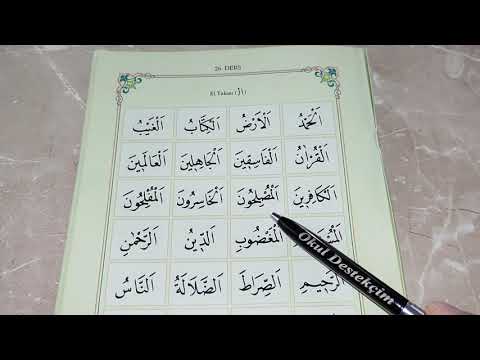 26. DERS
El Takısı (اَلْ)
اَلْحَمْدُ اَلْاَرْضُ اَلْكِتَابُ اَلْغَيْبُ
اَلْقُرْاٰنُ اَلْفَاسِقِينَ اَلْجَاهِلِينَ اَلْعَالَمِينَ
اَلْكَافِرِينَ اَلْمُصْلِحُونَ اَلْخَاسِرُونَ اَلْمُفْلِحُونَ
اَلْمَغْضُوبِ اَلدِّينُ اَلرَّحْمٰنِ
اَلرَّحِيمِ اَلصِّرَاطَ اَلضَّلَالَةُ اَلنَّاسُ
Okul Destekçim